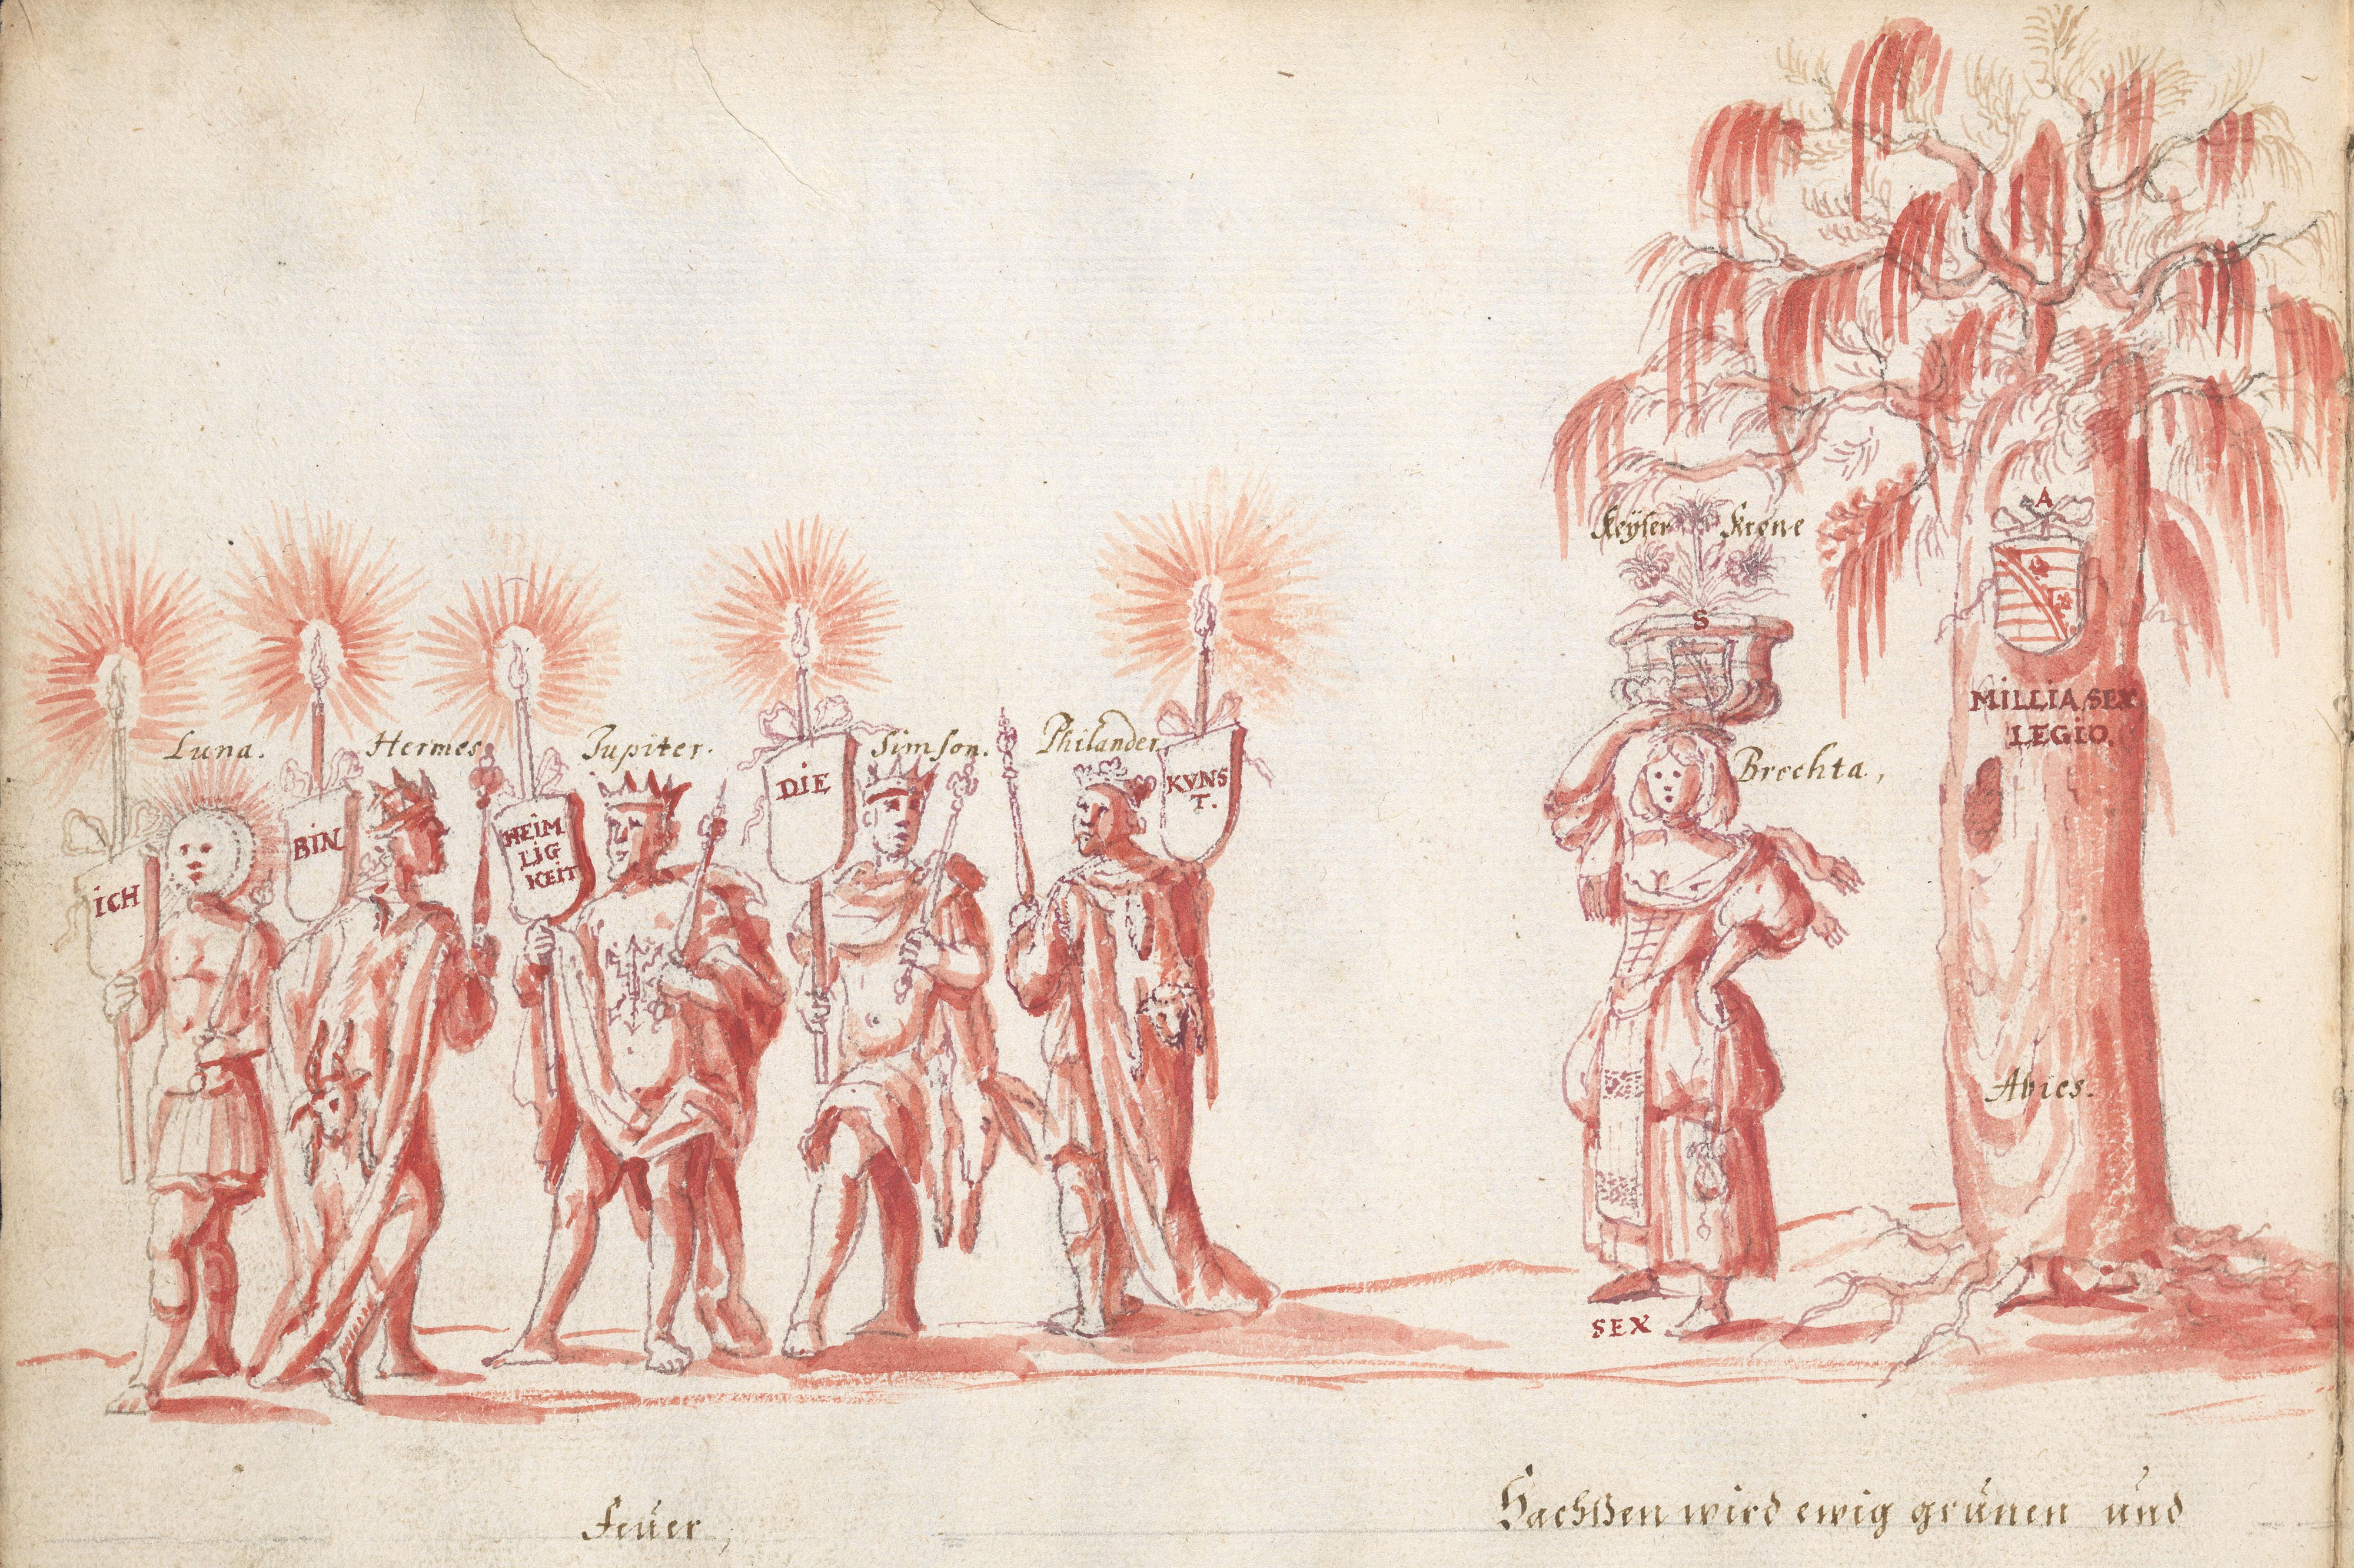 Keÿser Krone
A
S
MILLIA SEX
LEGIO.
Luna.
Hermes
Jupiter.
Simson.
Philander
Brechta,
ICH
BIN
HEIM
LIG
KEIT
DIE
KVNS
T.
Abies.
SEX
Feüer,
Sachßen wird ewig grünen und